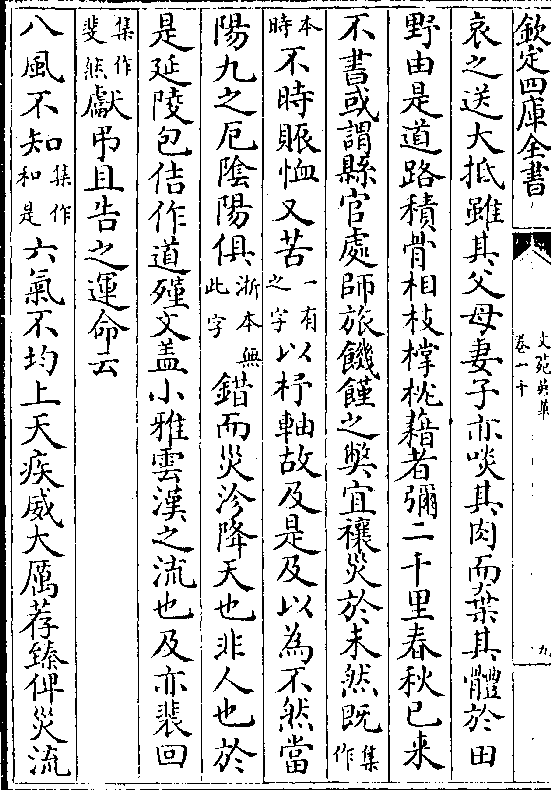 欽定四庫全書
文苑英華
卷一千
九
哀之送大抵雖其父母妻子亦啖其肉而棄其體於田
野由是道路積骨相枝撐枕藉者彌二千里春秋已来
不書或謂縣官處師旅饑饉之弊宜禳災於未然既集作
時本不時賑恤又苦一有之字以杼軸故及是及以為不然當
陽九之厄陰陽俱浙本無此字錯而災沴降天也非人也於
是延陵包佶作道殣文盖小雅雲漢之流也及亦裴回
集作斐然獻弔且告之運命云
八風不知集作和是六氣不均上天疾威大厲荐臻俾災流